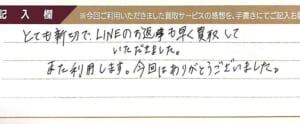 記入欄 ※今回ご利用いただきました買取サービスの感想を、手書きにてご記入お
とても親切で、LINEのお返事も早く買取して
いただきました。
また利用します。今回はありがとうございました。